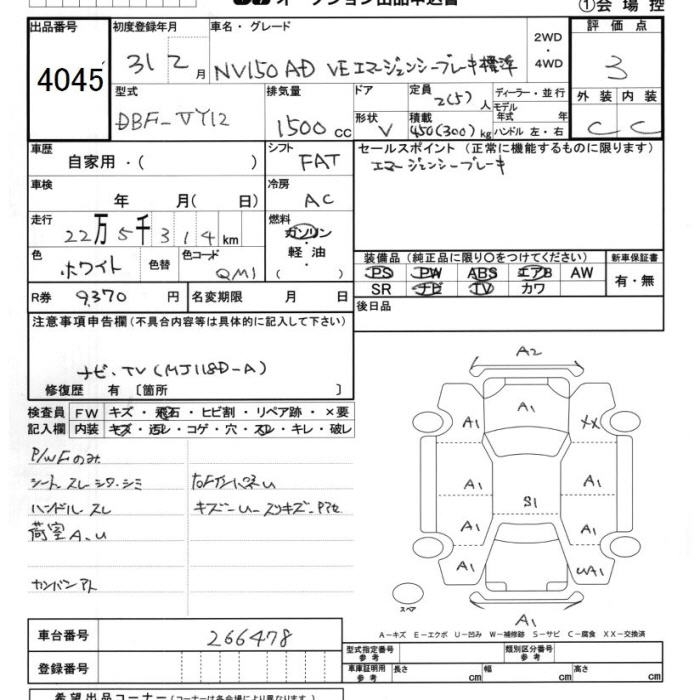 オークション出品申込書
①会場控
出品番号
4045
初度登録年月
31 2月
車名・グレード
NV150 AD VE エマージェンシーブレーキ横浜
2WD
・
4WD
評価点
3
型式
DBF-VY12
排気量
1500cc
ドア
形状
V
定員
2(5)人
積載
450(300)kg
ディーラー・並行
モデル
年式 年
ハンドル 左・右
外装 内装
C C
車歴
自家用・( )
シフト
FAT
セールスポイント (正常に機能するものに限ります)
エマージェンシーブレーキ
車検
年 月( 日)
冷房
AC
走行
22万5千314km
燃料
ガソリン
・
軽油
( )
色
ホワイト
色替
色コード
QM1
装備品 (純正品に限り○をつけてください)
新車保証書
PS PW ABS エアB AW
SR ナビ TV カワ
有・無
R券 9,370円
名変期限 月 日
後日品
注意事項申告欄(不具合内容等は具体的に記入して下さい)
ナビ、TV(MJ118D-A)
修復歴 有 〔箇所 〕
検査員
記入欄
FW キズ・飛石・ヒビ割・リペア跡・×要
内装 キズ・汚レ・コゲ・穴・スレ・キレ・破レ
P/WFのみ
シート スレ シワ・シミ
ハンドル スレ
荷室 A.U
カンバンアト
A2
A1
A1
XX
A1
A1
S1
A1
A1
A1
UA1
スペア
A1
A-キズ E-エクボ U-凹み W-補修跡 S-サビ C-腐食 XX-交換済
車台番号
266478
登録番号
型式指定番号
参考
類別区分番号
参考
車庫証明用
参考
長さ cm
幅 cm
高さ cm
希望出品コーナー(コーナーは各会場により異なります)